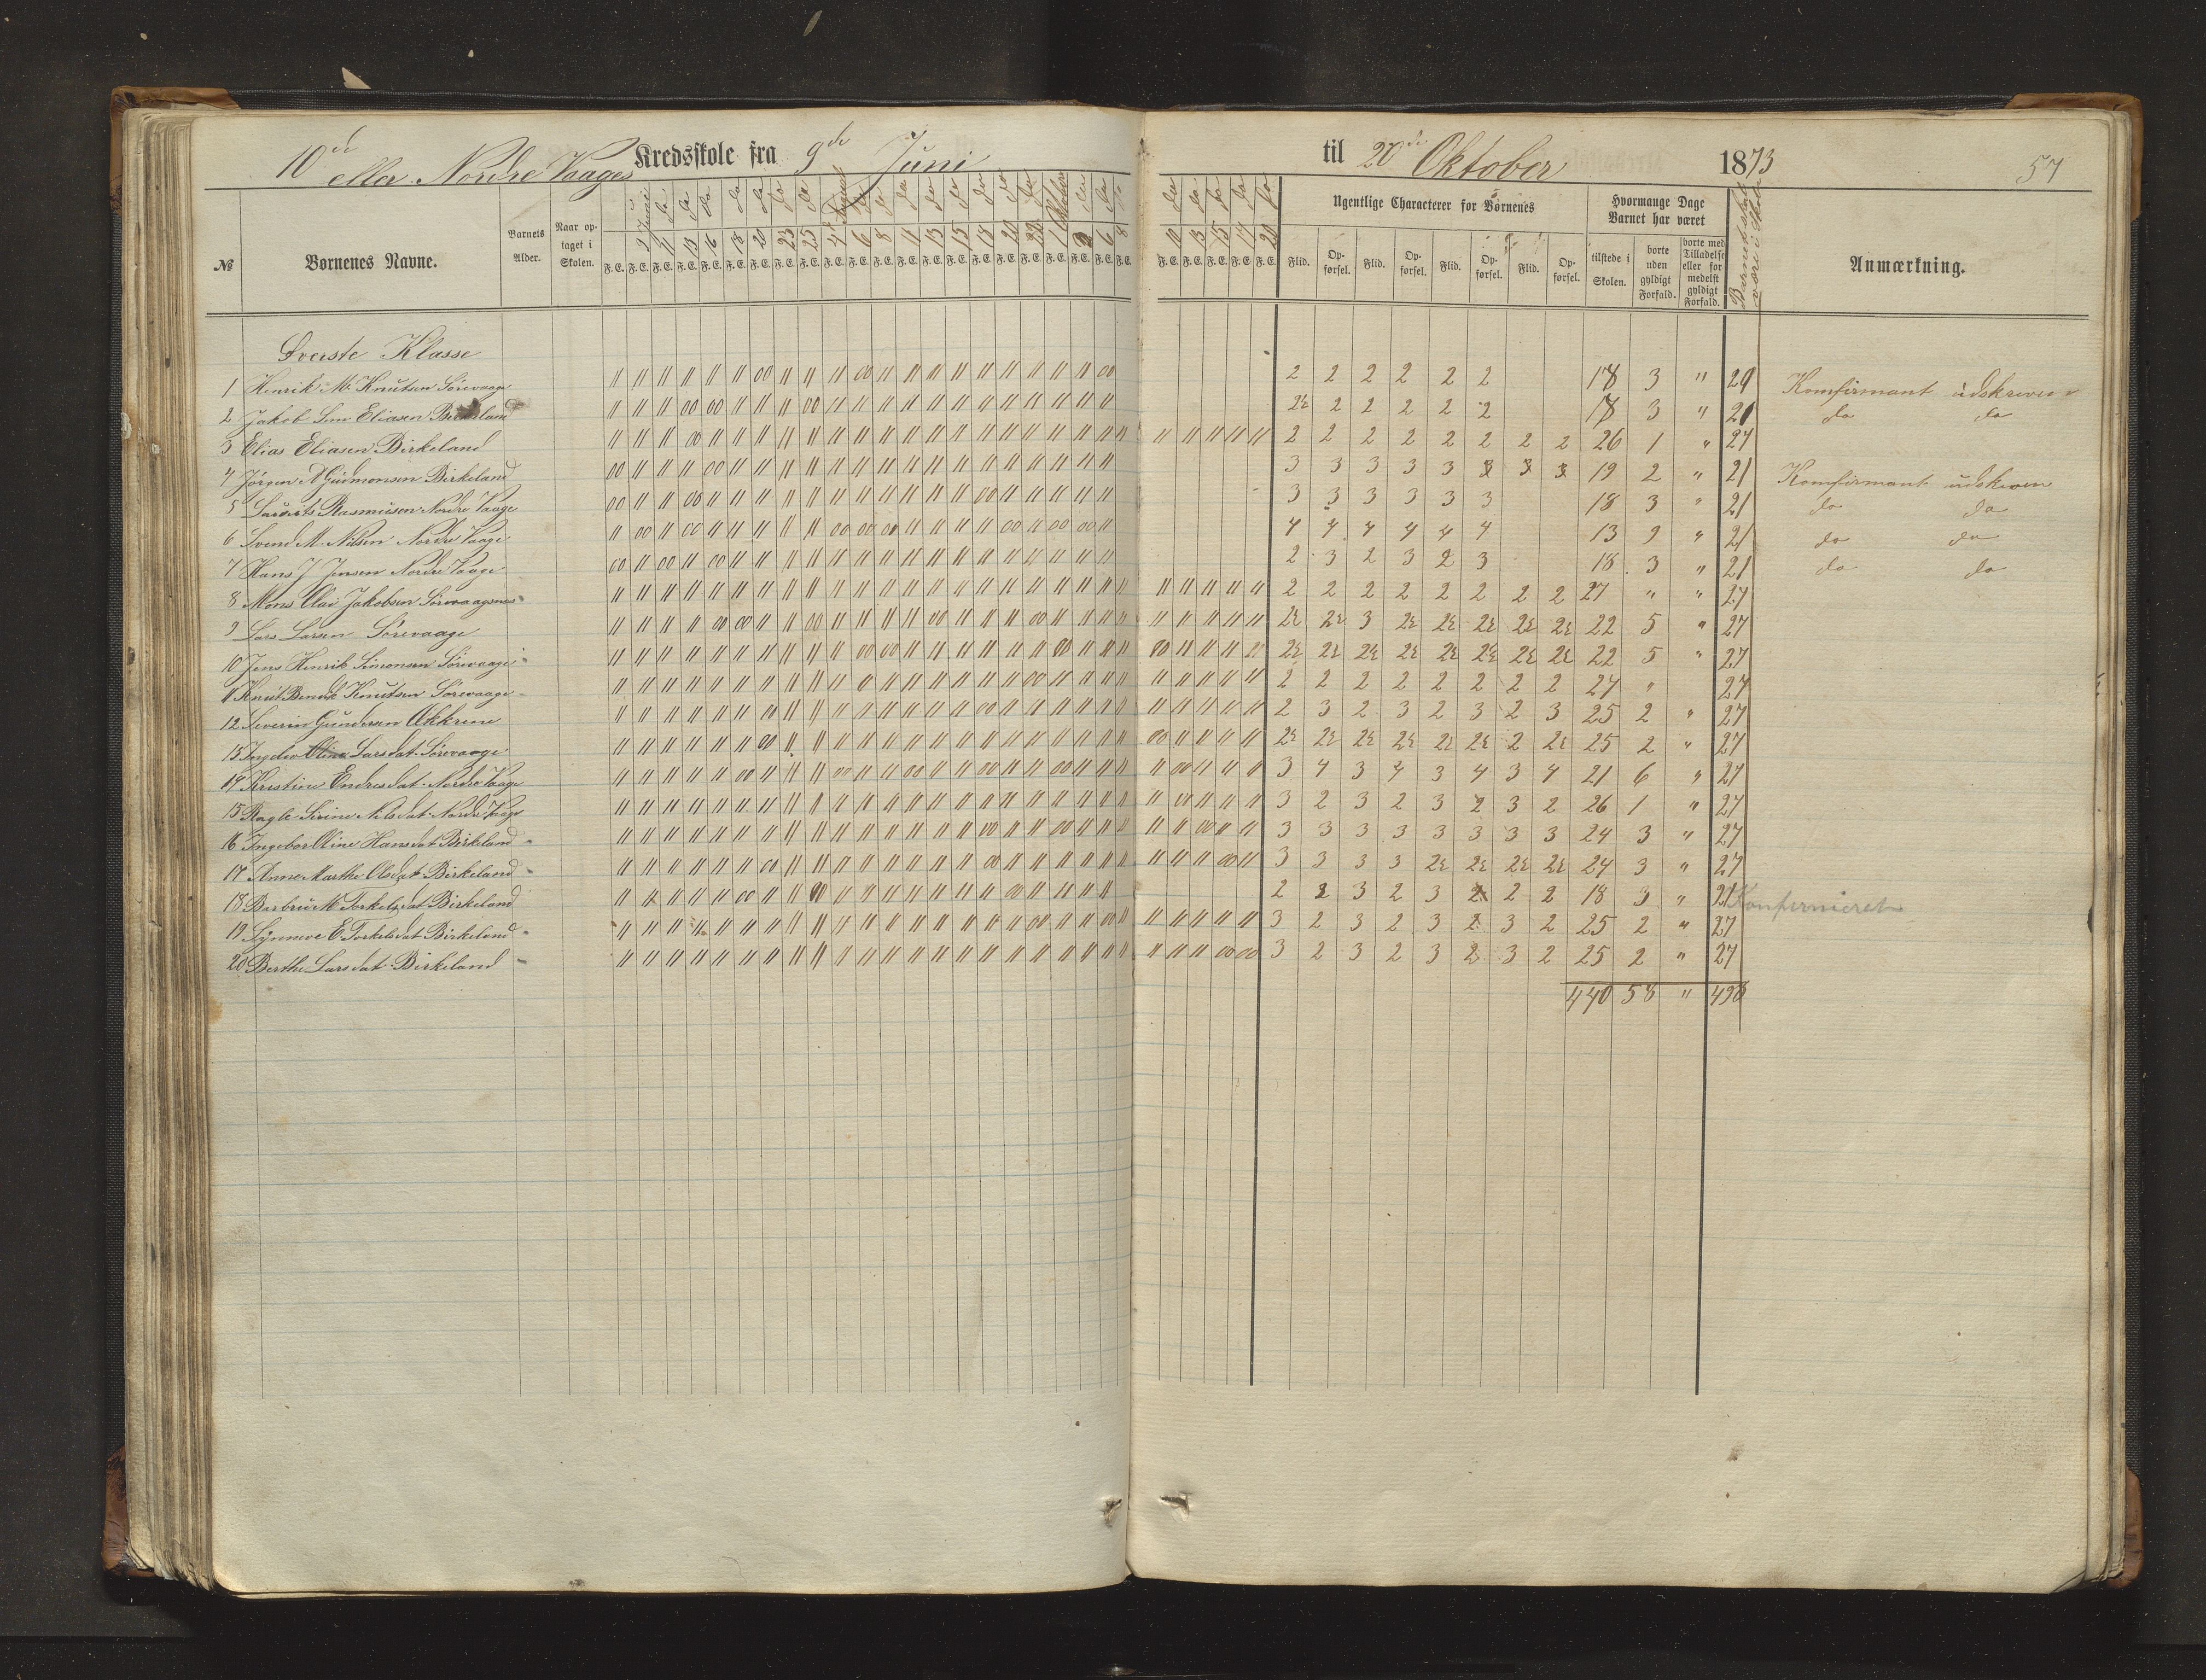 10de eller Nordre Vaages Kredsskole fra 9de Juni til 20de Oktober 1873 57
№ Børnenes Navne. Barnets Alder. Naar optaget i Skolen. Ugentlige Characterer for Børnenes Hvormange Dage Barnet har været Anmærkning.
Flid. Opførsel. Flid. Opførsel. Flid. Opførsel. Flid. Opførsel. tilstede i Skolen. borte uden gyldigt Forfald. borte med Tilladelse eller for medelst gyldigt Forfald.
9 11 13 16 18 20 23 25 4 6 8 11 13 15 18 20 22 1 3 6 8 10 13 15 17 20
Øverste Klasse
1 Henrik M. Knutsen Sørevaage 2 2 2 2 2 2 18 3 " 21 Komfirmant udskreven
2 Jakob Sim Eliasen Birkeland 2½ 2 2 2 2 2 18 3 " 21 do do
3 Elias Eliasen Birkeland 2 2 2 2 2 2 2 2 26 1 " 27
4 Jørgen A Gudmonsen Birkeland 3 3 3 3 3 3 3 3 19 2 " 21 Komfirmant udskreven
5 Laurits Rasmusen Nordre Vaage 3 3 3 3 3 3 18 3 " 21 do do
6 Svend M. Nilsen Nordre Vaage 4 4 4 4 4 4 13 9 " 21 do do
7 Hans J Jensen Nordre Vaage 2 3 2 3 2 3 18 3 " 21 do do
8 Mons Olai Jakobsen Sørevaagsnes 2 2 2 2 2 2 2 2 27 " " 27
9 Lars Larsen Sørevaage 2½ 2½ 3 2½ 2½ 2½ 2½ 2½ 22 5 " 27
10 Jens Henrik Simonsen Sørevaage 2½ 2½ 2½ 2½ 2½ 2½ 2½ 2½ 22 5 " 27
11 Knut Bendik Knutsen Sørevaage 2 2 2 2 2 2 2 2 27 " 27
12 Severin Gundersen Økkrene 2 3 2 3 2 3 2 3 25 2 " 27
13 Ingebor Oline Larsdat. Sørevaage 2½ 2½ 2½ 2½ 2½ 2½ 2 2½ 25 2 " 27
14 Kristine Endresdat. Nordre Vaage 3 4 3 4 3 4 3 4 21 6 " 27
15 Ragle Serine Nilsdat. Nordre Vaage 3 2 3 2 3 2 3 2 26 1 " 27
16 Ingebor Oline Hansdat Birkeland 3 3 3 3 3 3 3 3 24 3 " 27
17 Anne Marthe Olsdat. Birkeland 3 3 3 3 2½ 2½ 2½ 2½ 24 3 " 27
18 Barbru M Torkelsdat Birkeland 2 2 3 2 3 2 2 2 18 3 " 21 Konfermieret
19 Synnove E. Torkelsdat Birkeland 3 2 3 2 3 2 3 2 25 2 " 27
20 Berthe Larsdat. Birkeland 3 2 3 2 3 2 3 2 25 2 " 27
440 58 " 498